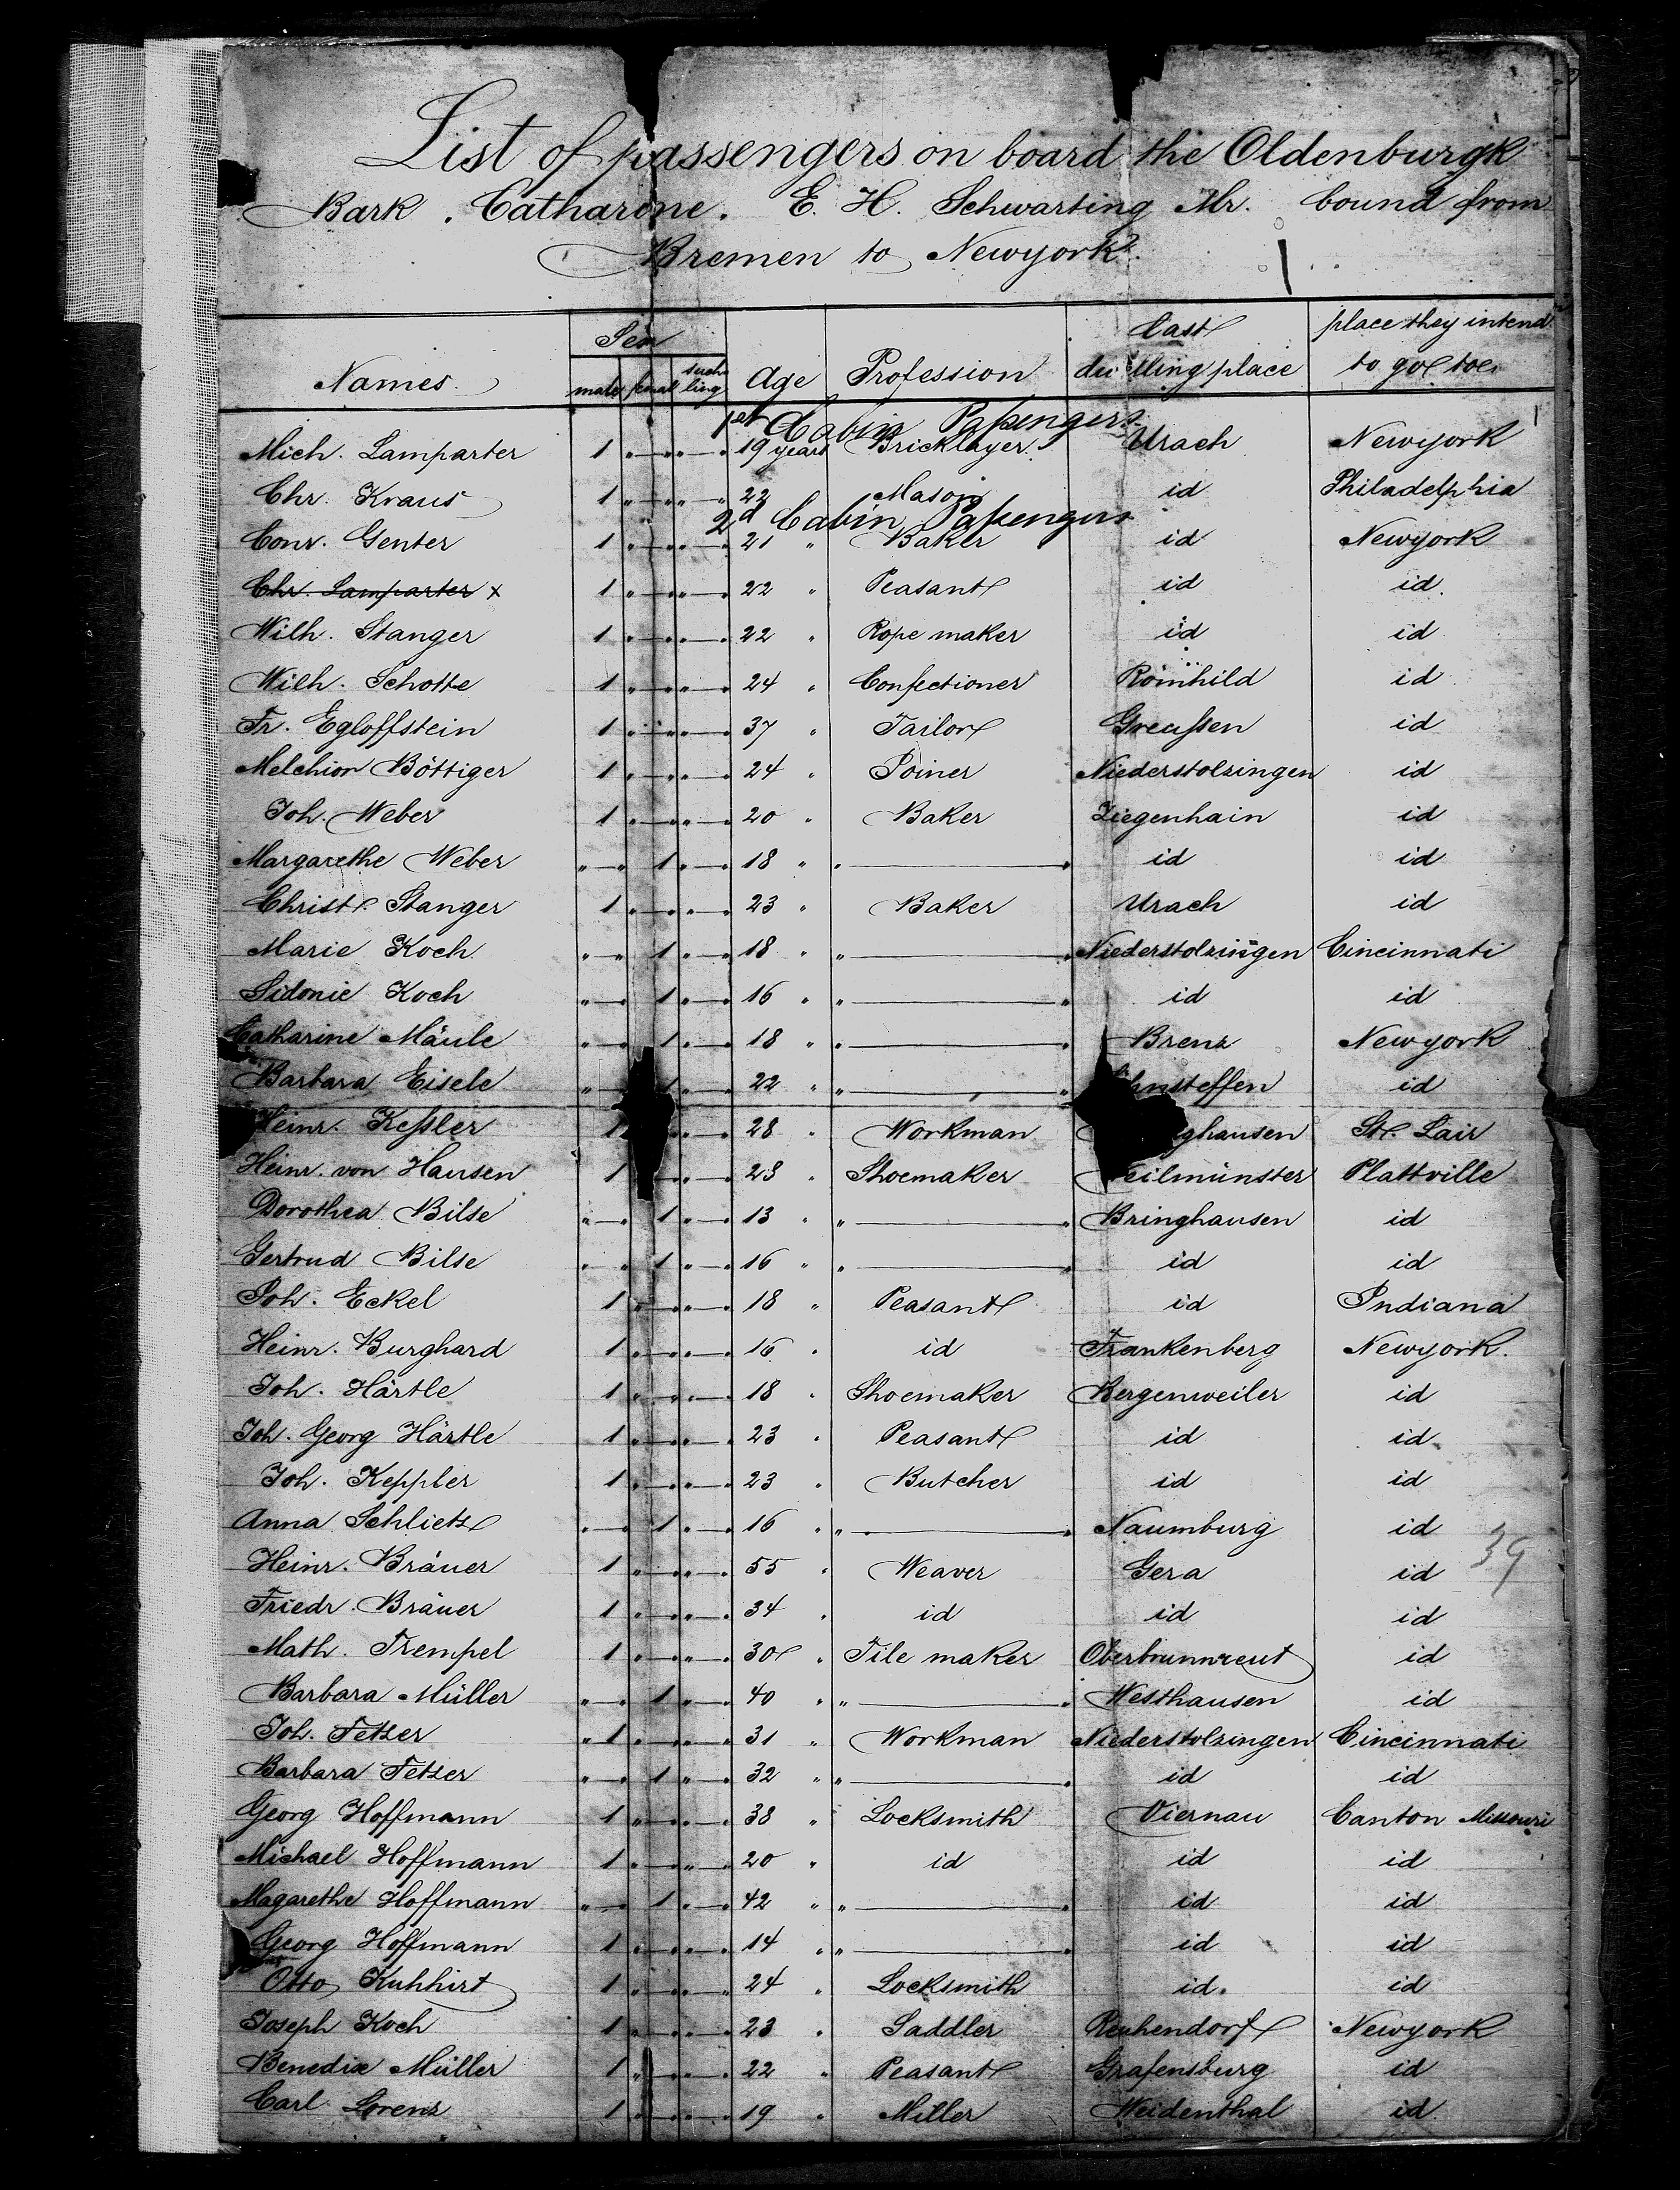 List of passengers on board the Oldenburgk
Bark. Catharine. E. H. Schwarting Mr. bound from
Bremen to Newyork.
Names. Sex male femal suckling Age Profession Last dwelling place place they intend to go to
1st Cabin Passengers
Mich. Lamparter 1 " " 19 years Bricklayer. Urach Newyork
Chr. Kraus 1 " " 22 Mason id Philadelphia
2d Cabin Passengers
Conr. Genter 1 " " 21 " Baker id Newyork
Chr. Lamparter x 1 " " 22 " Peasant id id.
Wilh. Stanger 1 " " 22 " Rope maker id id
Wilh. Schotte 1 " " 24 " Confectioner Römhild id
Fr. Egloffstein 1 " " 37 " Tailor Greussen id
Melchior Böttiger 1 " " 24 " Joiner Niederstolzingen id
Joh. Weber 1 " " 20 " Baker Ziegenhain id
Margarethe Weber " 1 " 18 " " id id
Christ. Stanger 1 " " 23 " Baker Urach id
Marie Koch " 1 " 18 " " Niederstolzingen Cincinnati
Sidonie Koch " 1 " 16 " " id id
Catharine Mäule " 1 " 18 " " Brenz Newyork
Barbara Eisele " 1 " 22 " " id
Heinr. Kessler 1 " 28 " Workman ghausen St. Lair
Heinr. von Hausen 1 " 28 " Shoemaker eilmünster Plattville
Dorothea Bilse " 1 " 13 " " Bringhausen id
Gertrud Bilse " 1 " 16 " " id id
Joh. Eckel 1 " " 18 " Peasant id Indiana
Heinr. Burghard 1 " " 16 " id Frankenberg Newyork.
Joh. Härtle 1 " " 18 " Shoemaker Bergenweiler id
Joh. Georg Härtle 1 " " 23 " Peasant id id
Joh. Keppler 1 " " 23 " Butcher id id
Anna Schlietz " 1 " 16 " " Naumburg id
39
Heinr. Bräuer 1 " " 55 " Weaver Gera id
Friedr. Bräuer 1 " " 34 " id id id
Math. Trempel 1 " " 30 " Tile maker Oberbrunnreut id
Barbara Müller " 1 " 40 " " Westhausen id
Joh. Fetzer 1 " " 31 " Workman Niederstolzingen Cincinnati
Barbara Fetzer " 1 " 32 " " id id
Georg Hoffmann 1 " " 38 " Locksmith Viernau Canton Missouri
Michael Hoffmann 1 " " 20 " id id id
Magarethe Hoffmann " 1 " 42 " " id id
Georg Hoffmann 1 " " 14 " " id id
Otto Kuhhirt 1 " " 24 " Locksmith id. id
Joseph Koch 1 " " 23 " Saddler Newyork
Benedix Müller 1 " " 22 " Peasant Grafensburg id
Carl Lorenz 1 " " 19 " Miller Weidenthal id